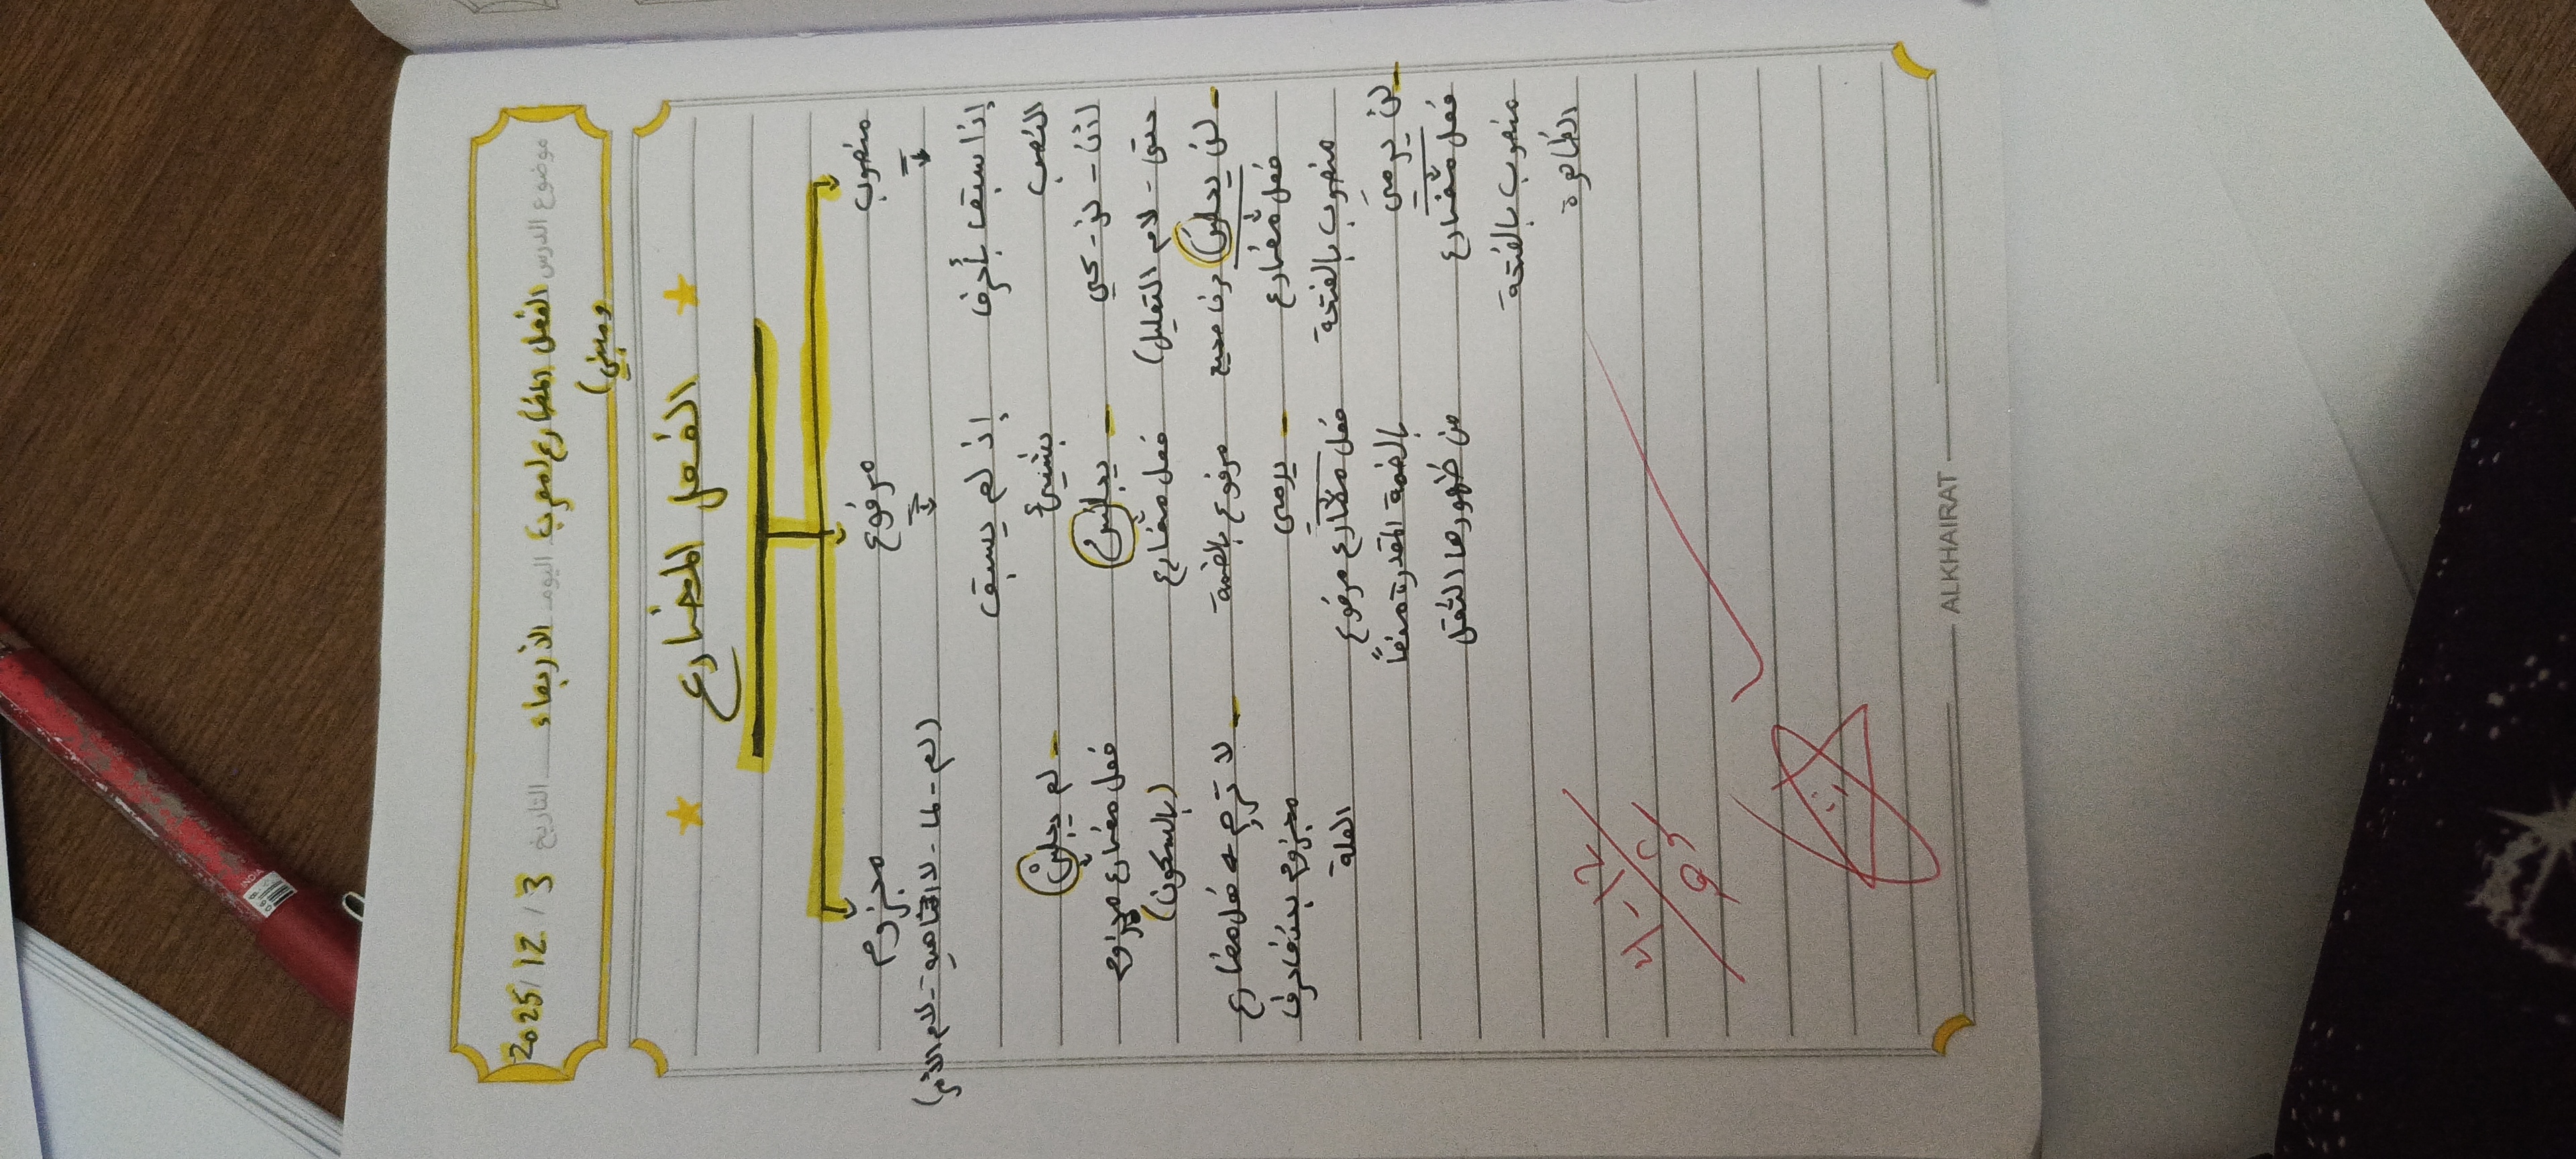 موضوع الدرس الفعل المضارع (معرب اليوم الأربعاء التاريخ 3 / 12 / 2025
ومبني)
الفعل المضارع
منصوب
إذا سبق بأحرف
النصب
(أن - لن - كي
حتى - لام التعليل)
- لن يجلسَ حرف صحيح
فعل مضارع
منصوب بالفتحة
- لن يرميَ
فعل مضارع
منصوب بالفتحة
الظاهرة
مرفوع
إذ لم يسبق
بشيئ
- يجلسُ
فعل مضارع
مرفوع بالضمة
- يرمي
فعل مضارع مرفوع
بالضمة المقدرة منعاً
من ظهورها الثقل
مجزوم
(لم - لما - لا الناهية - لام الأمر)
- لم يجلسْ
فعل مضارع مجزوم
(بالسكون)
- لا ترمِ فعل مضارع
مجزوم بحذف حرف
العلة
ALKHAIRAT